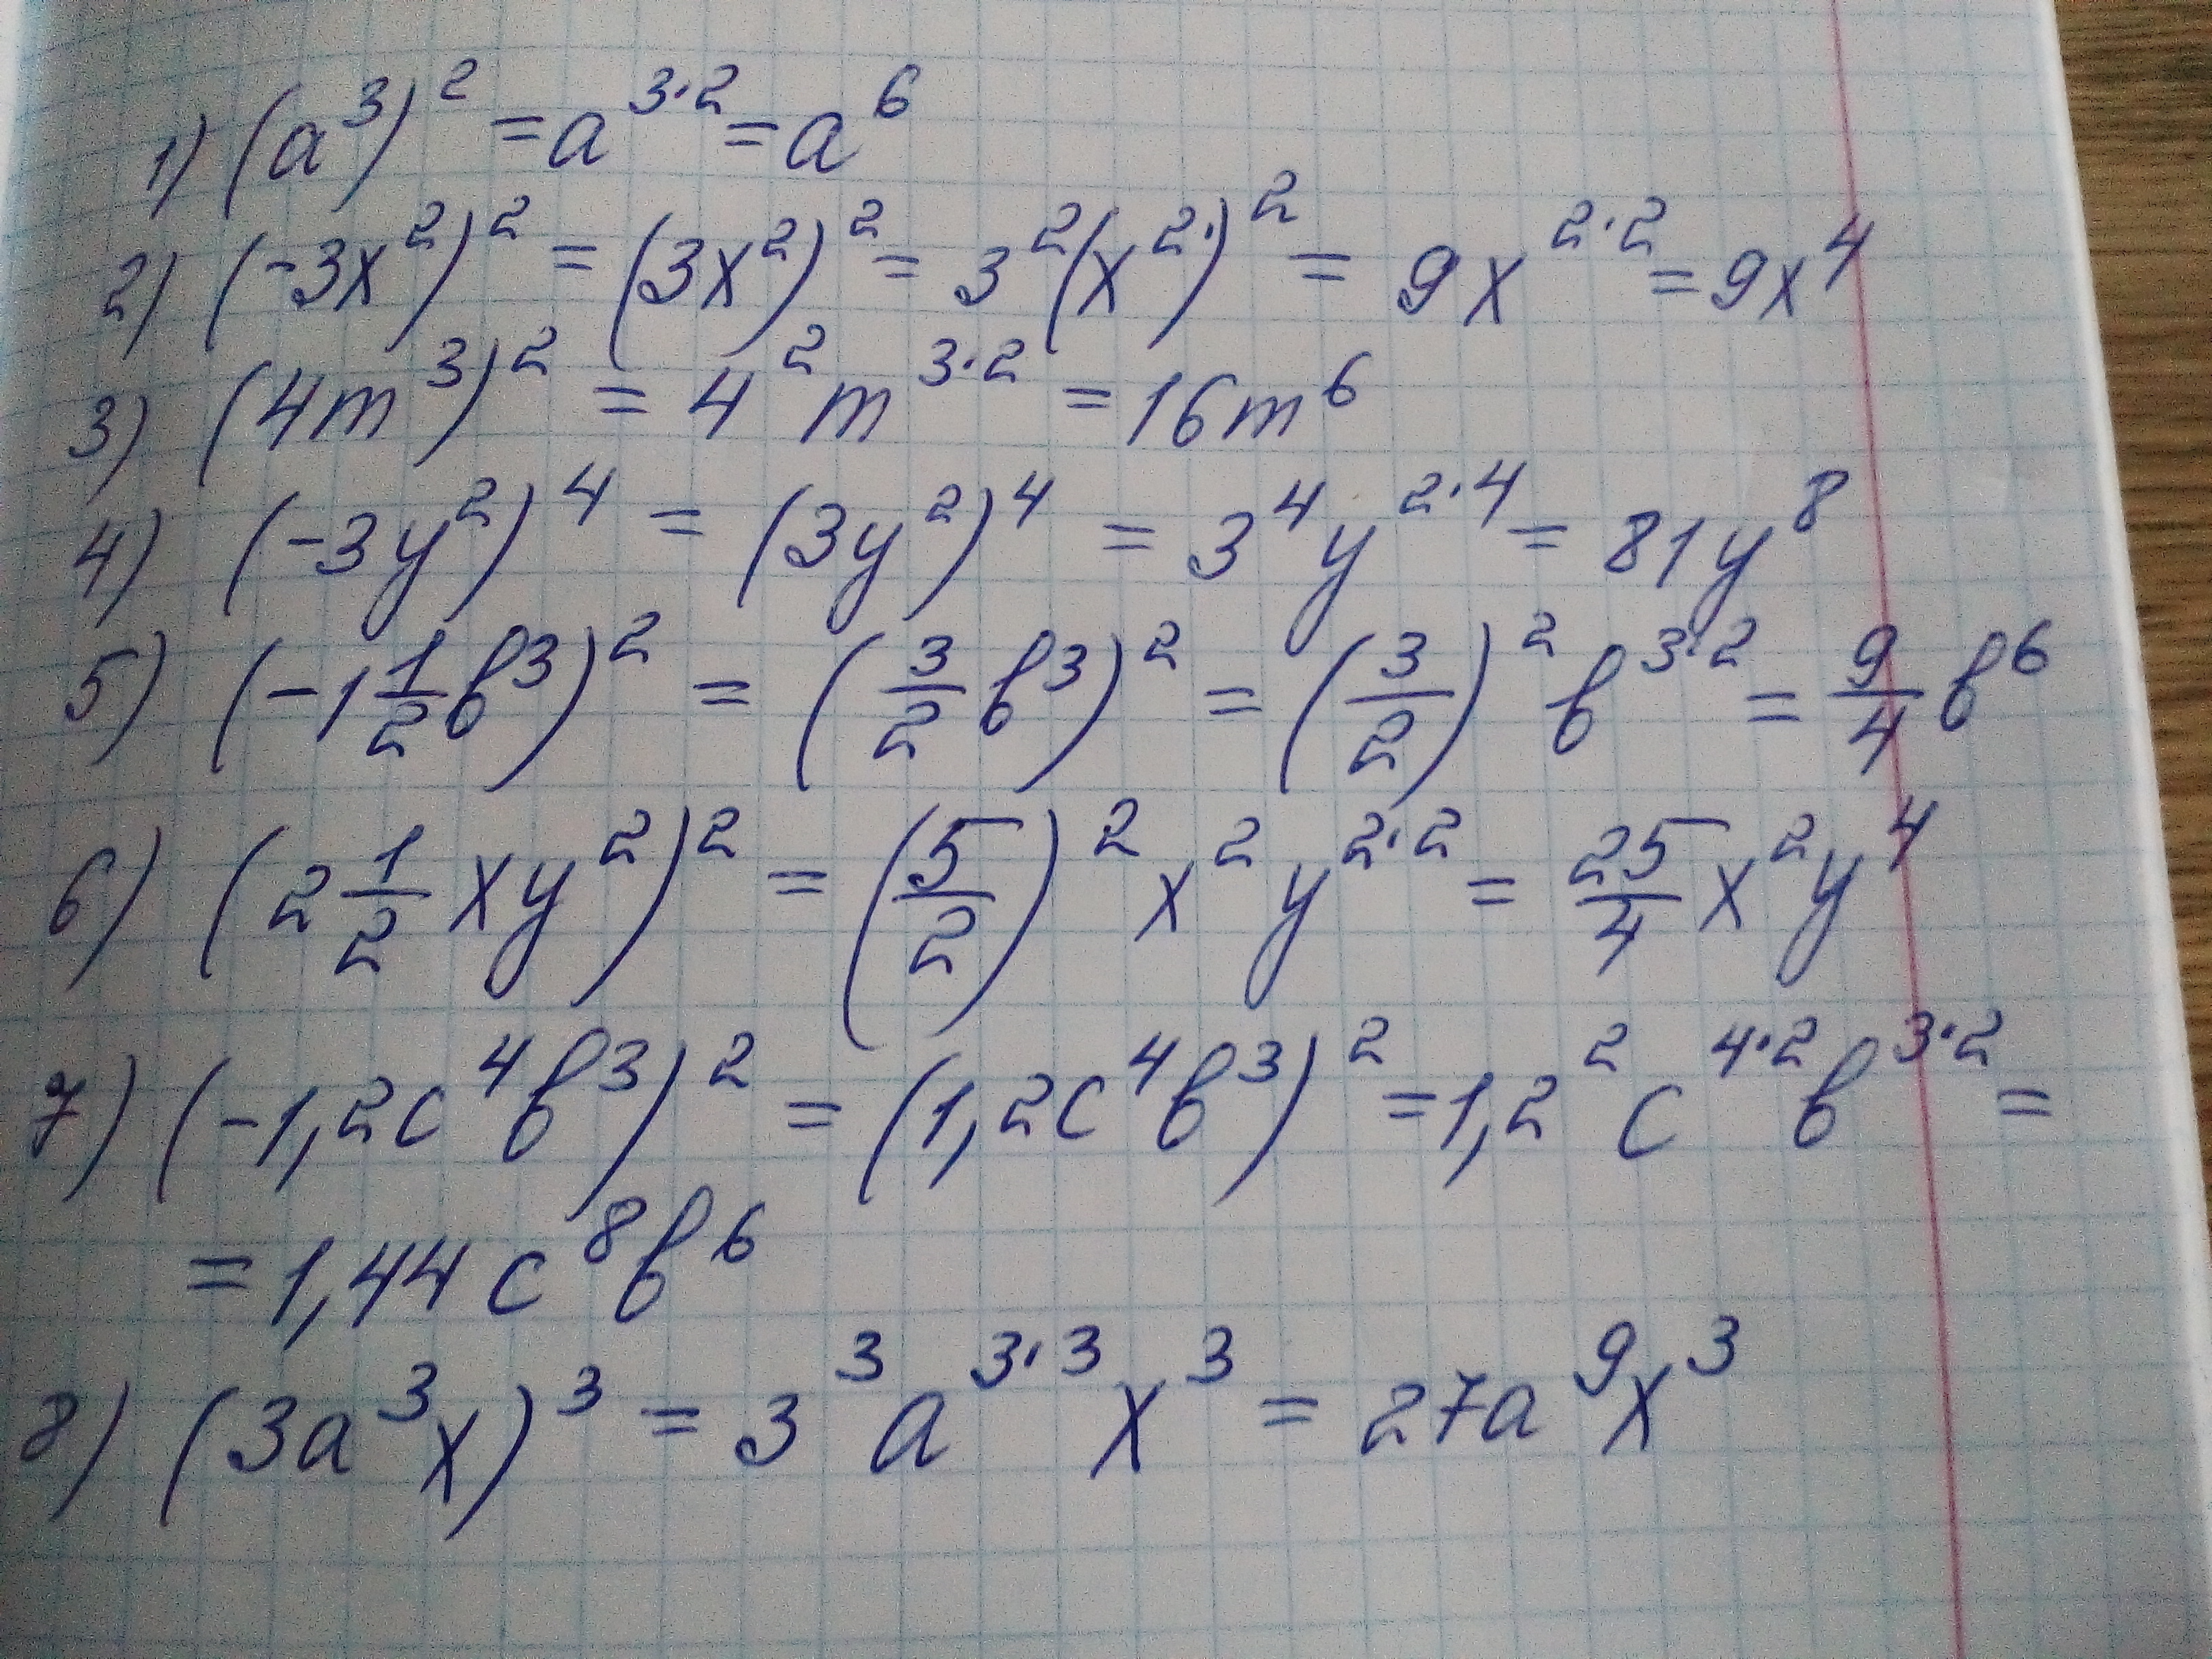 1) (a³)² = a³·² = a⁶
2) (-3x²)² = (3x²)² = 3²(x²·)² = 9x²·² = 9x⁴
3) (4m³)² = 4²m³·² = 16m⁶
4) (-3y²)⁴ = (3y²)⁴ = 3⁴y²·⁴ = 81y⁸
5) (-1 1/2 b³)² = (3/2 b³)² = (3/2)² b³·² = 9/4 b⁶
6) (2 1/2 xy²)² = (5/2)² x² y²·² = 25/4 x²y⁴
7) (-1,2c⁴b³)² = (1,2c⁴b³)² = 1,2² c⁴·² b³·² =
= 1,44 c⁸b⁶
8) (3a³x)³ = 3³a³·³x³ = 27a⁹x³